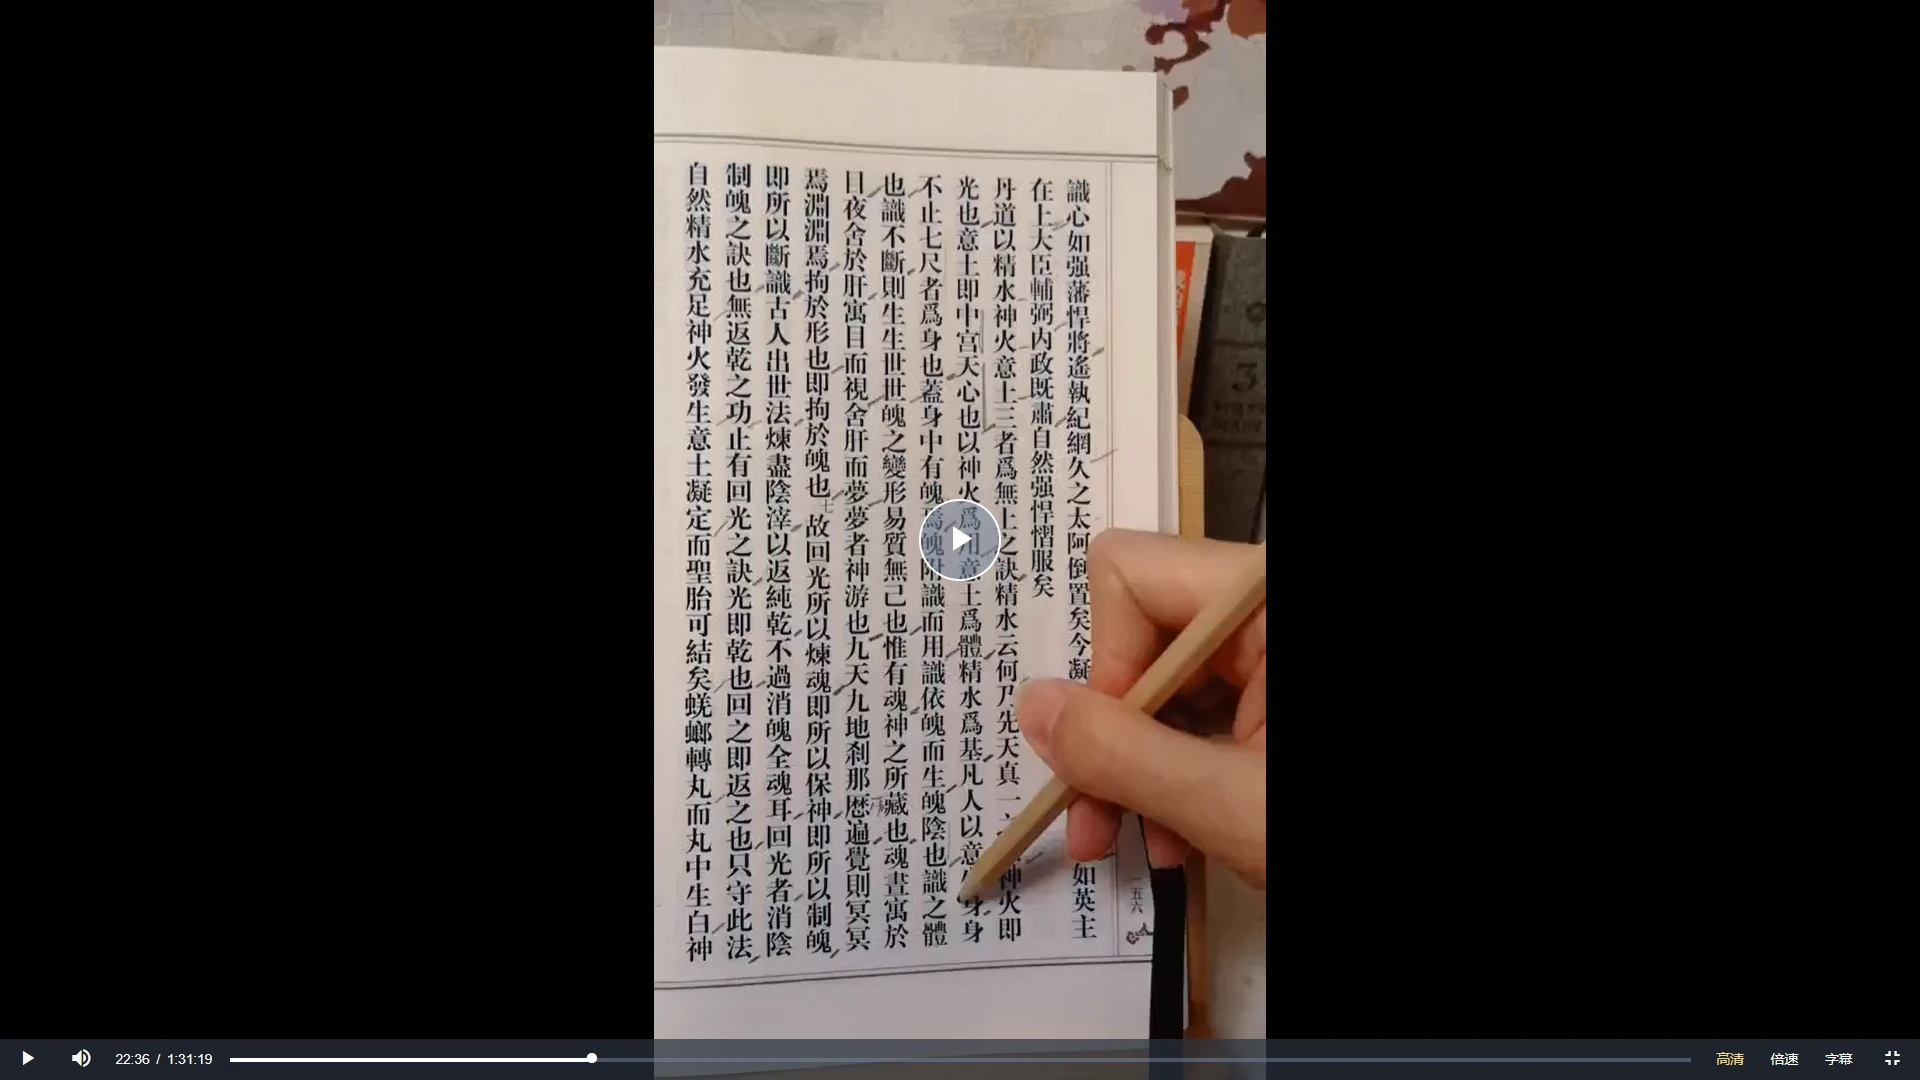 識心如强藩悍將遙執紀綱久之太阿倒置矣今凝如英主
在上大臣輔弼内政既肅自然强悍慴服矣
丹道以精水神火意土三者爲無上之訣精水云何乃先天真一神火即
光也意土即中宫天心也以神火爲用意土爲體精水爲基凡人以意身身
不止七尺者爲身也蓋身中有魄焉魄附識而用識依魄而生魄陰也識之體
也識不斷則生生世世魄之變形易質無已也惟有魂神之所藏也魂晝寓於
目夜舍於肝寓目而視舍肝而夢夢者神游也九天九地剎那歷遍覺則冥冥
焉淵淵焉拘於形也即拘於魄也故回光所以煉魂即所以保神即所以制魄
即所以斷識古人出世法煉盡陰滓以返純乾不過消魄全魂耳回光者消陰
制魄之訣也無返乾之功止有回光之訣光即乾也回之即返之也只守此法
自然精水充足神火發生意土凝定而聖胎可結矣蜣螂轉丸而丸中生白神
一五六
3
22:36 / 1:31:19
高清
倍速
字幕